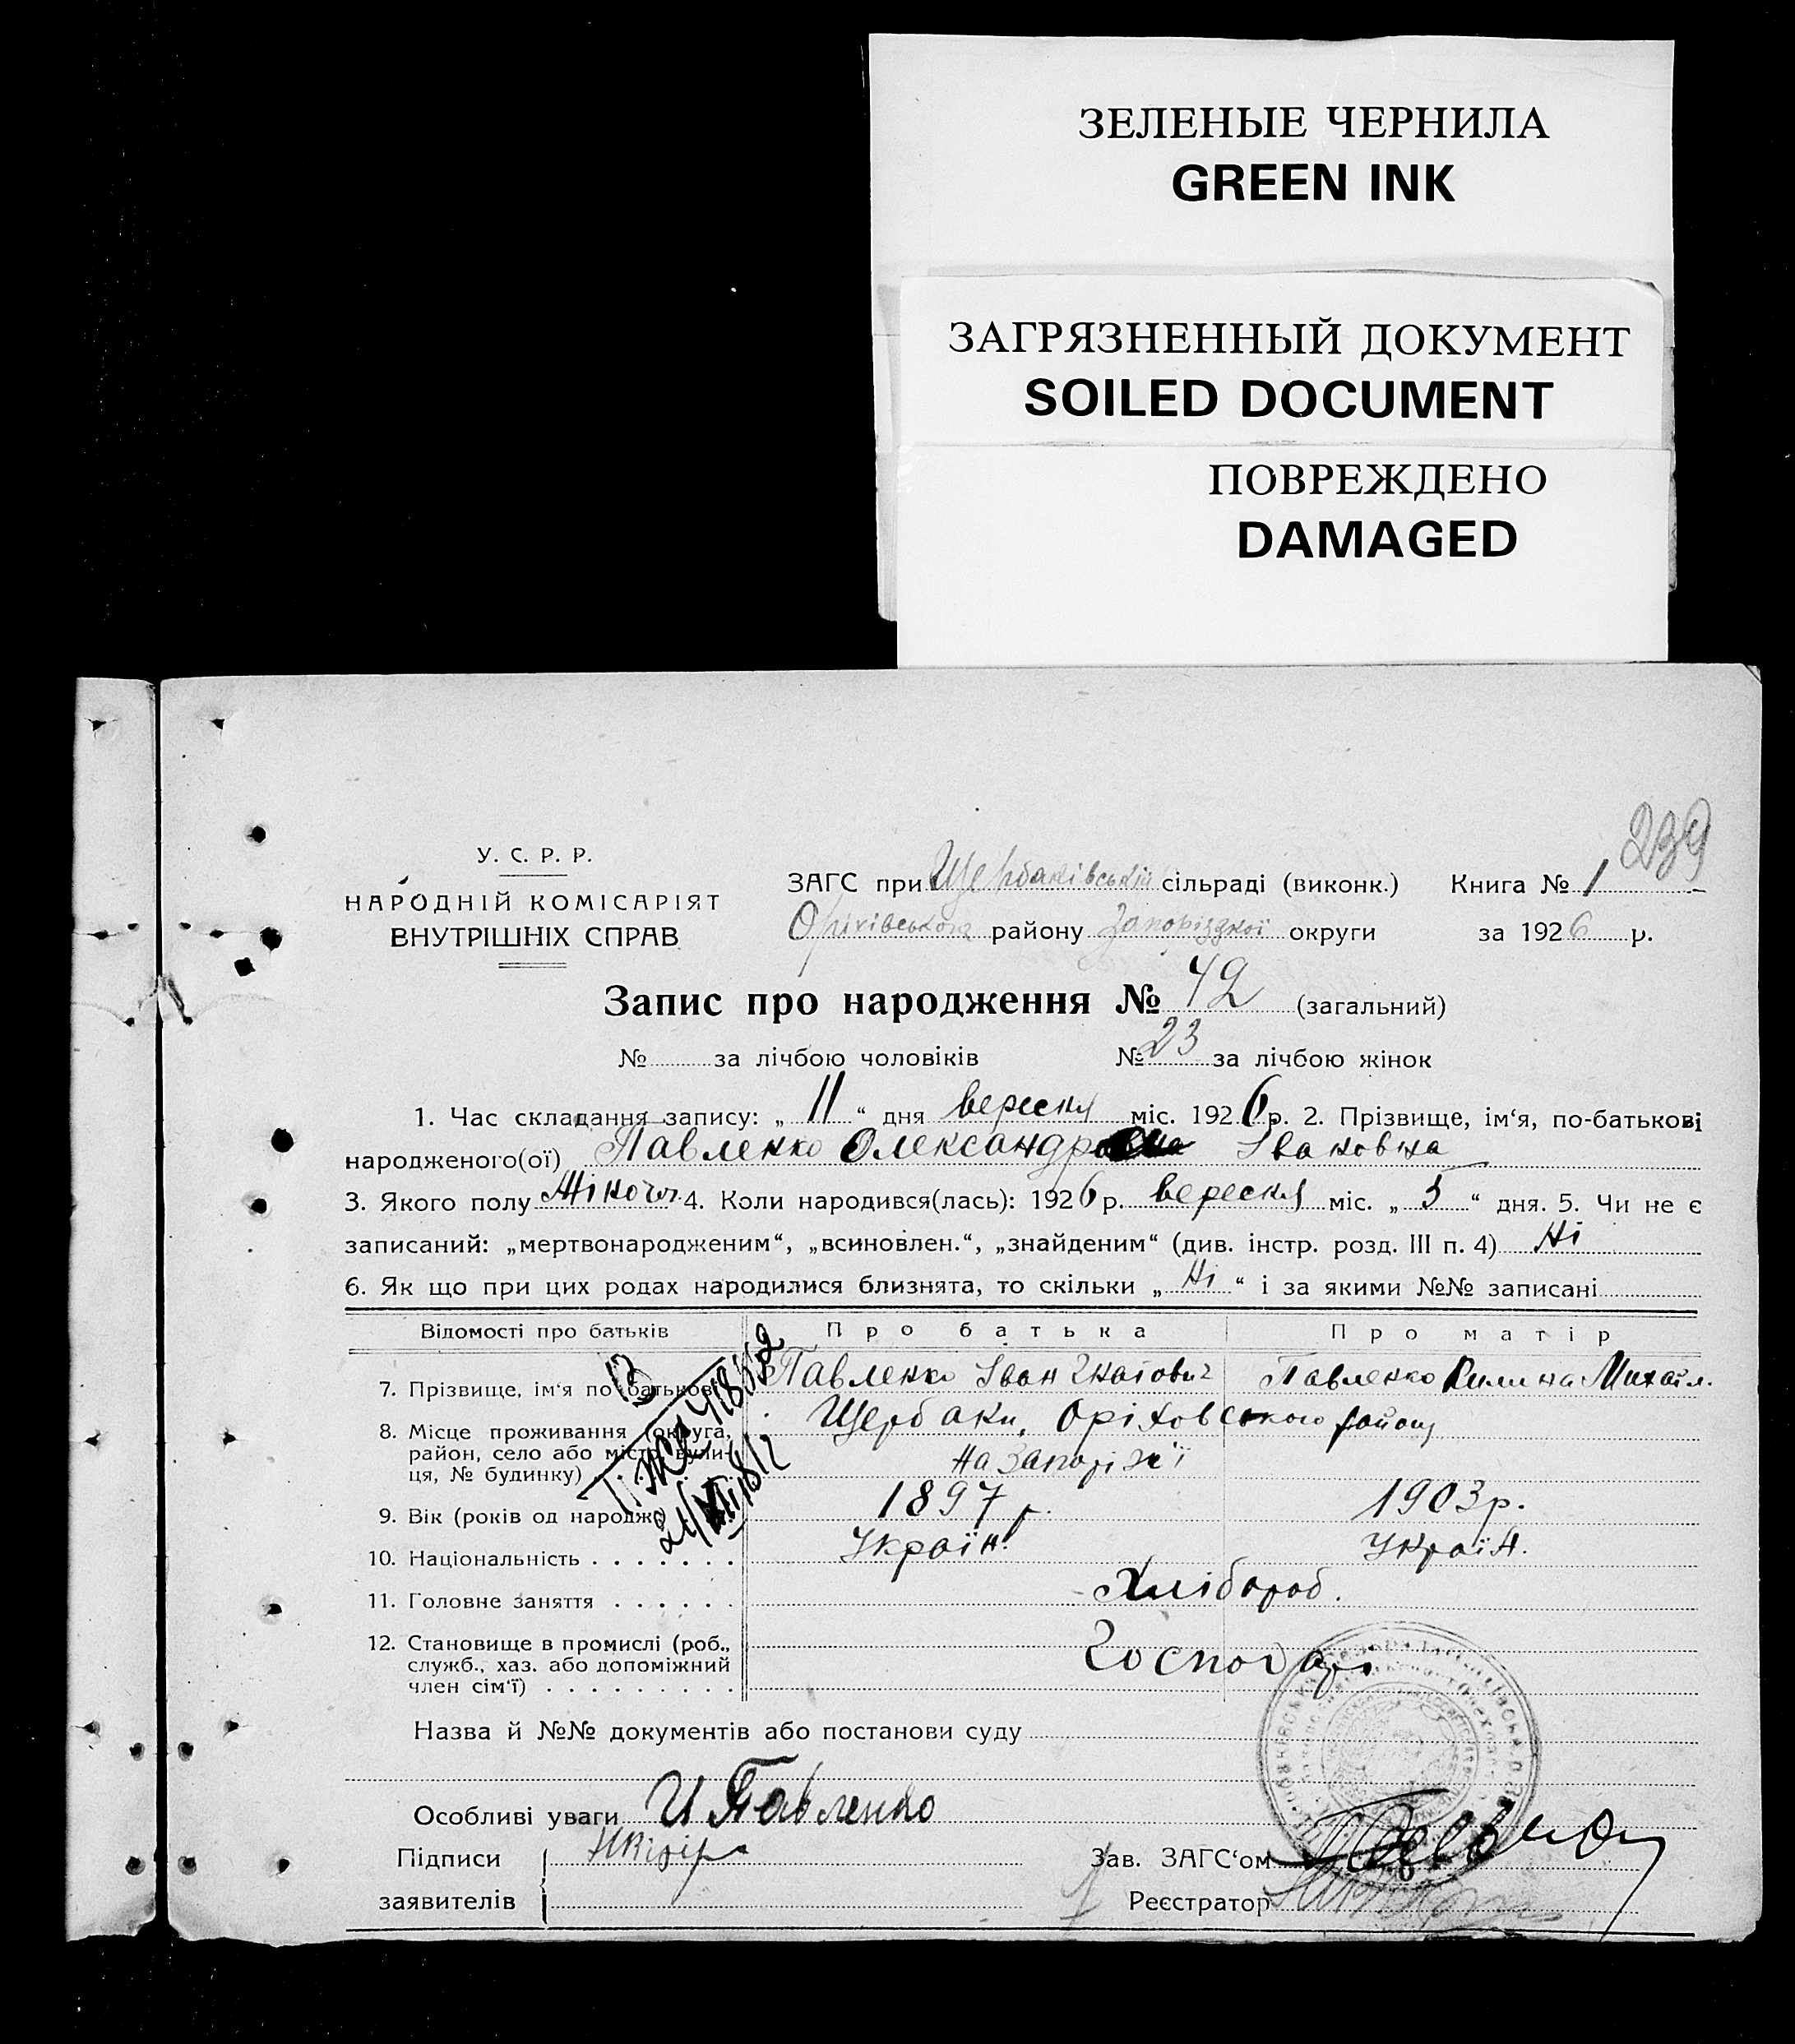 ЗЕЛЕНЫЕ ЧЕРНИЛА
GREEN INK
ЗАГРЯЗНЕННЫЙ ДОКУМЕНТ
SOILED DOCUMENT
ПОВРЕЖДЕНО
DAMAGED
239
У. С. Р. Р.
НАРОДНІЙ КОМІСАРІЯТ
ВНУТРІШНІХ СПРАВ
ЗАГС при Щербаківській сільраді (виконк.) Книга № 1
Оріхівського району Запорізької округи за 1926 р.
Запис про народження № 42 (загальний)
№ за лічбою чоловіків № 23 за лічбою жінок
1. Час складання запису: „ 11 “ дня вересня міс. 1926 р. 2. Прізвище, ім‘я, по-батькові
народженого(ої) Павленко Олександра Івановна
3. Якого полу Жіноч. 4. Коли народився(лась): 1926 р. вересня міс. „ 5 “ дня. 5. Чи не є
записаний: „мертвонародженим“, „всиновлен.“, „знайденим“ (див. інстр. розд. III п. 4) Ні
6. Як що при цих родах народилися близнята, то скільки „ Ні “ і за якими №№ записані
Відомості про батьків Про батька Про матір
7. Прізвище, ім‘я по батькові Павленко Іван Гнатович Павленко Килина Михайл.
8. Місце проживання (округа, район, село або місто, вулиця, № будинку) Щербаки, Оріховського району
на Запоріж‘ї
9. Вік (років од народж.) 1897 р. 1903 р.
10. Національність Україн. Україн.
11. Головне заняття Хлібороб.
12. Становище в промислі (роб., служб., хаз. або допоміжний член сім‘ї) Господар.
Назва й №№ документів або постанови суду
Особливі уваги И Павленко
Підписи
заявителів
Зав. ЗАГС‘ом
Реєстратор